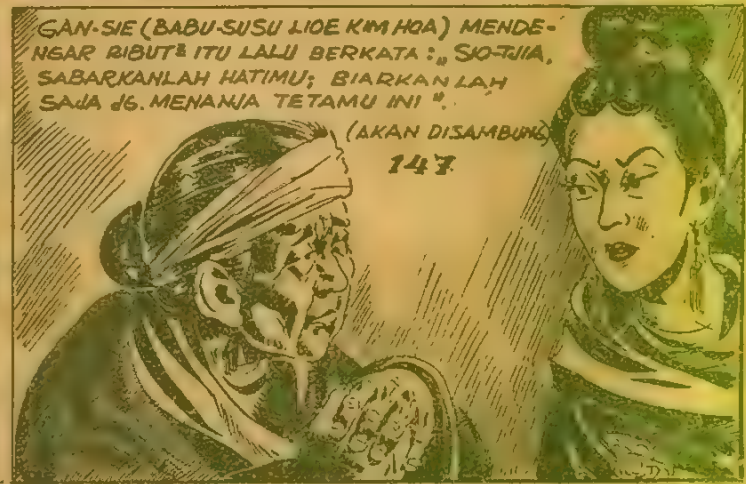 GAN-SIE (BABU-SUSU LIOE KIM HOA) MENDE-
NGAR RIBUT² ITU LALU BERKATA: „SIO-TJIA,
SABARKANLAH HATIMU; BIARKANLAH
SAJA JG. MENANJA TETAMU INI".
(AKAN DISAMBUNG)
147